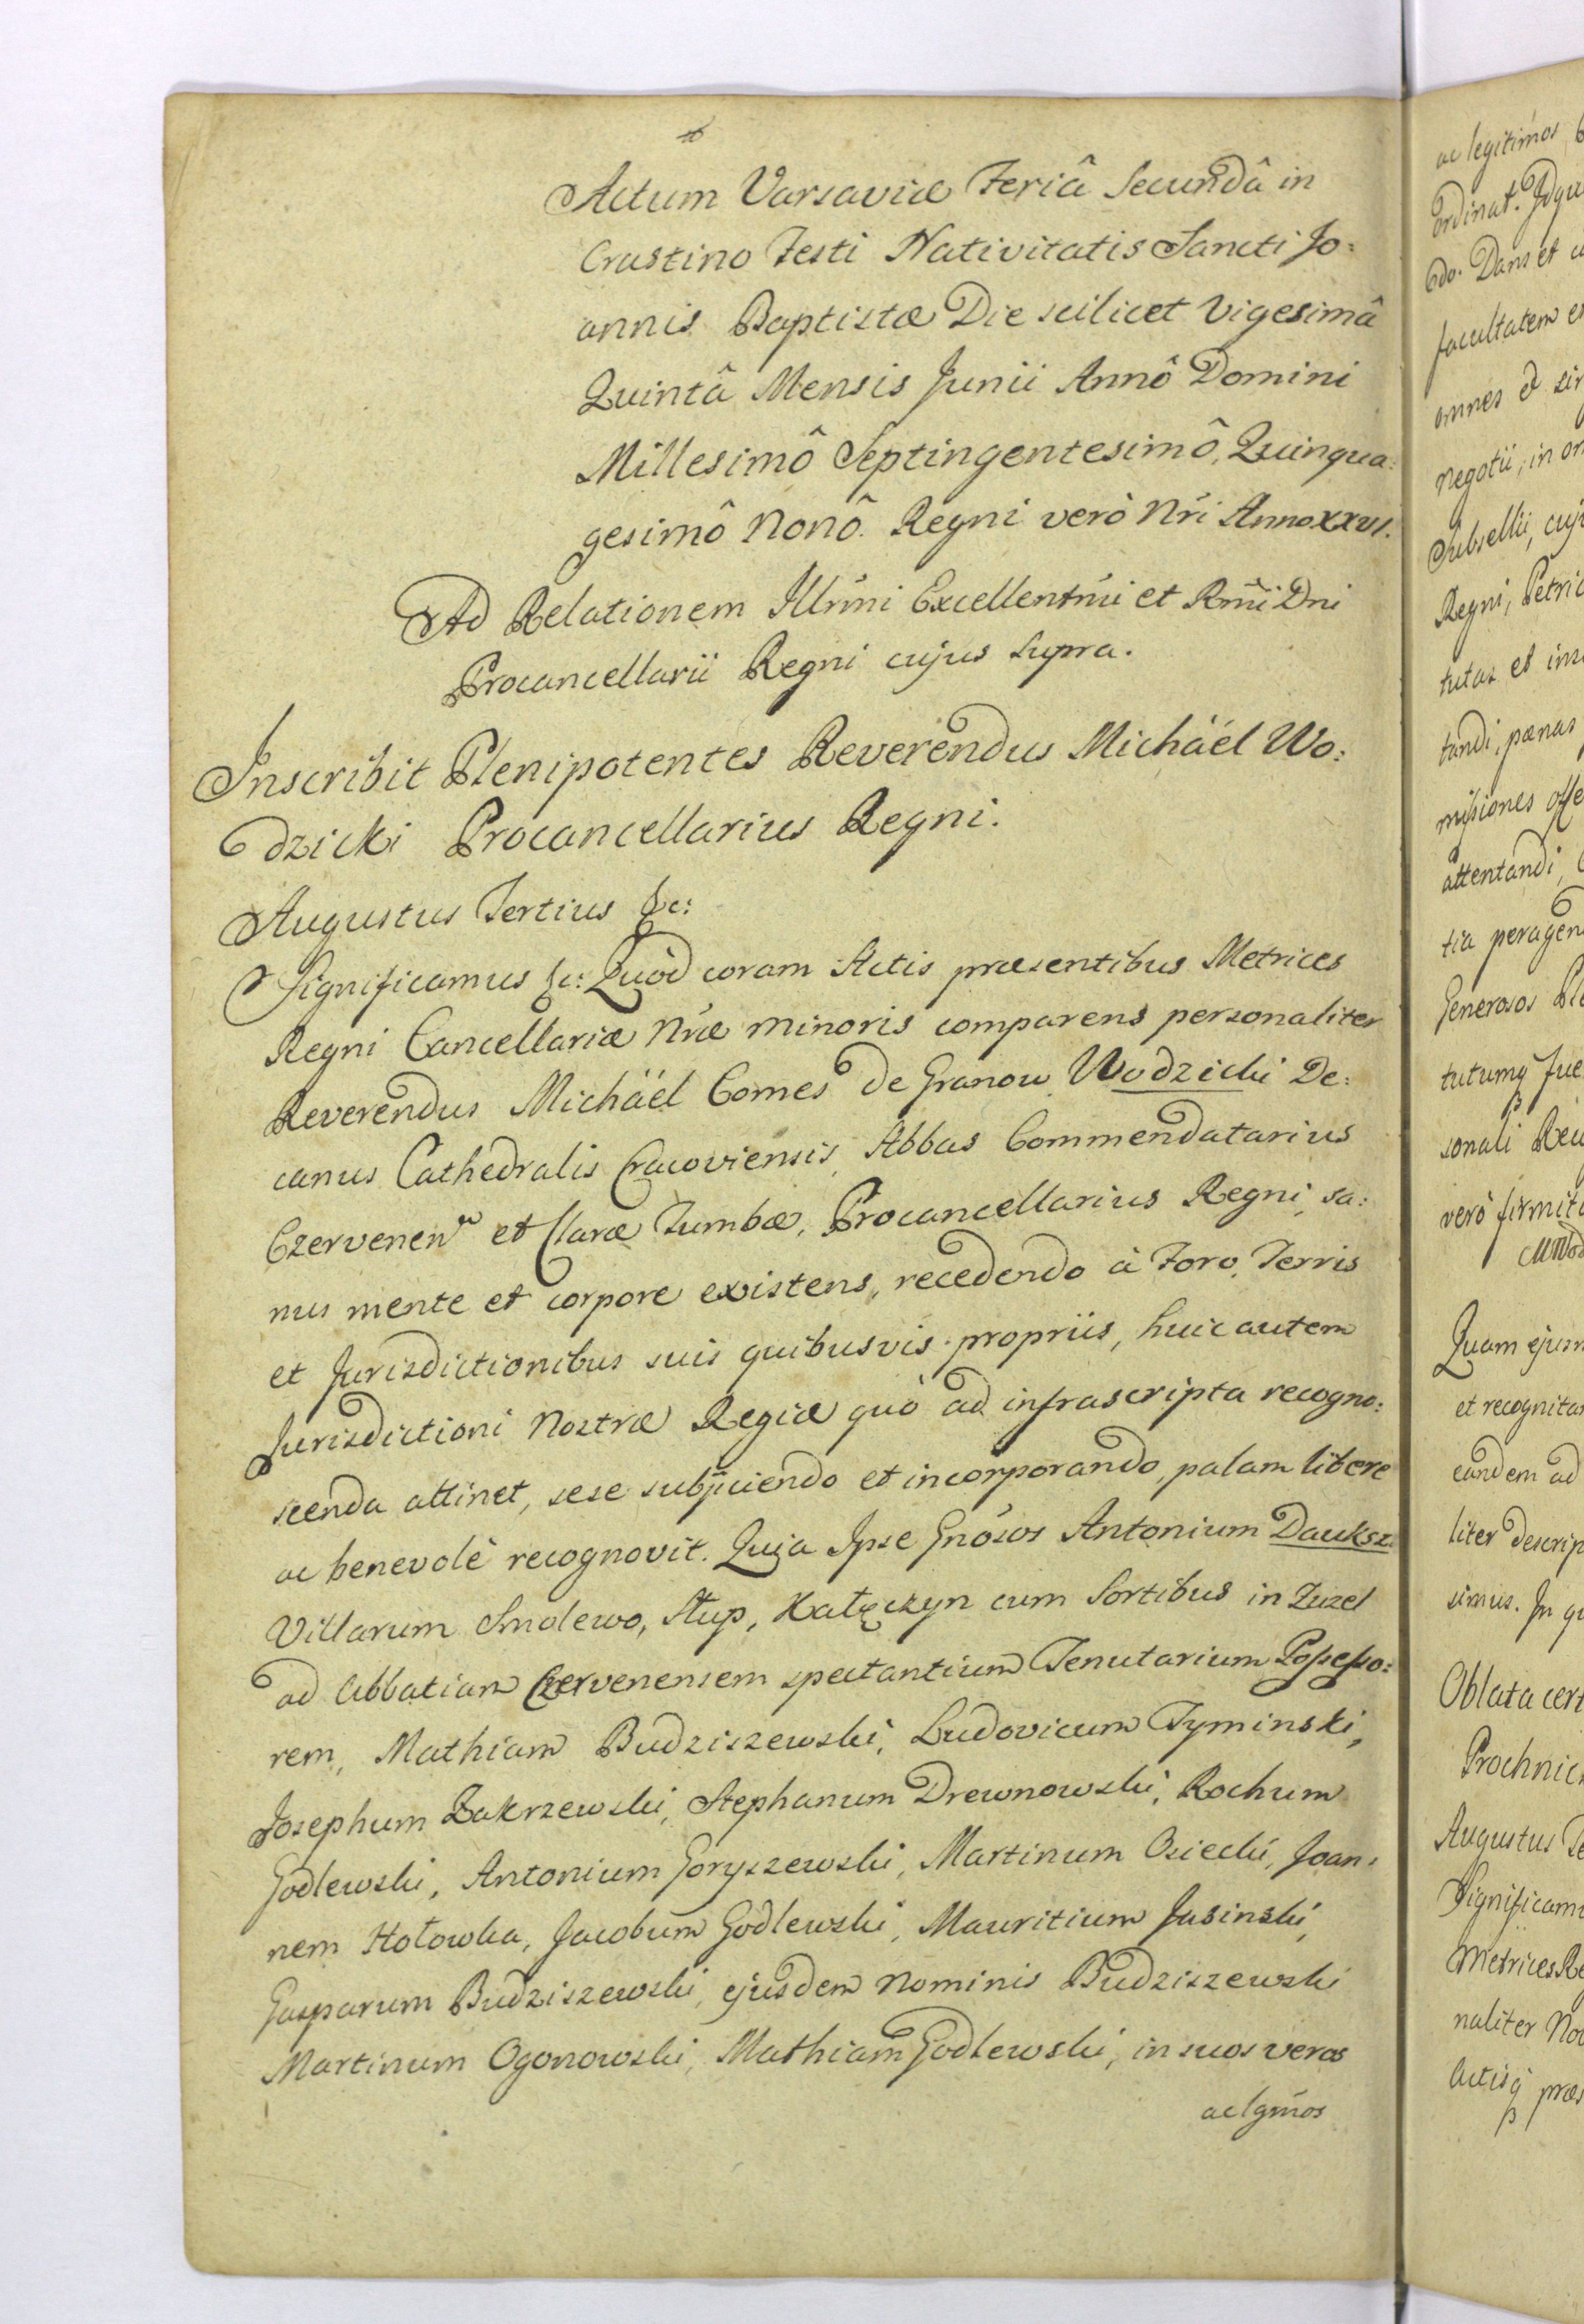 Actum Varsaviæ Feriâ Secundâ in
Crastino Festi Nativitatis Sancti Jo:
annis Baptistæ Die scilicet Vigesimâ
Quintâ Mensis Junii Annô Domini
Millesimô Septingentesimô, Quinqua:
gesimô Nonô. Regni verò Nri Anno XXVI.
Ad Relationem Illrmi Excellentmi et Rmi Dni
Procancellarii Regni cujus supra.
Inscribit Plenipotentes Reverendus Michäél Wo:
dzicki Procancellarius Regni.
Augustus Tertius &c:
Significamus &c: Quòd coram Actis præsentibus Metrices
Regni Cancellariæ Nræ minoris comparens personaliter
Reverendus Michäél Comes de Granow Wodzicki De:
canus Cathedralis Cracoviensis, Abbas Commendatarius
Czervenen et Claræ Tumbæ, Procancellarius Regni, sa:
nus mente et corpore existens, recedendo à Foro, Terris
et Jurisdictionibus suis quibusvis propriis, huic autem
Jurisdictioni Nostræ Regiæ quò ad infrascripta recogno:
scenda attinet, sese subjiciendo et incorporando, palam libere
ac benevolè recognovit. Quia Ipse Gnósos Antonium Dauksz.
Villarum Smolewo, Słup, Kałęczyn cum Sortibus in Zuzel
ad Abbatiam Czervenensem spectantium Tenutarium Possesso:
rem, Mathiam Budziszewski, Ludovicum Tyminski,
Josephum Zakrzewski, Stephanum Drewnowski, Rochum
Godlewski, Antonium Goryszewski, Martinum Osiecki, Joan:
nem Hołowka, Jacobum Godlewski, Mauritium Jasinski,
Gasparum Budziszewski, ejusdem Nominis Budziszewski
Martinum Ogonowski, Mathiam Godlewski, in suos veros
ac lgmos
ac legitimos
ordinat. Idqu
do. Dans et
facultatem
omnes et sin
negotii, in
Subsellii, cuj
Regni, Petric
tutas et
tandi, pænas
missiones offe
attentandi,
tia peragen
Generosos Ple
tutumq fue
sonali Rev
verò firmita
Quam ejusm
et recognita
eandem ad
liter descrip
simus. In qu
Oblata cert
Prochnic
Augustus Te
Significam
Metrices Re
naliter
Actisq præs